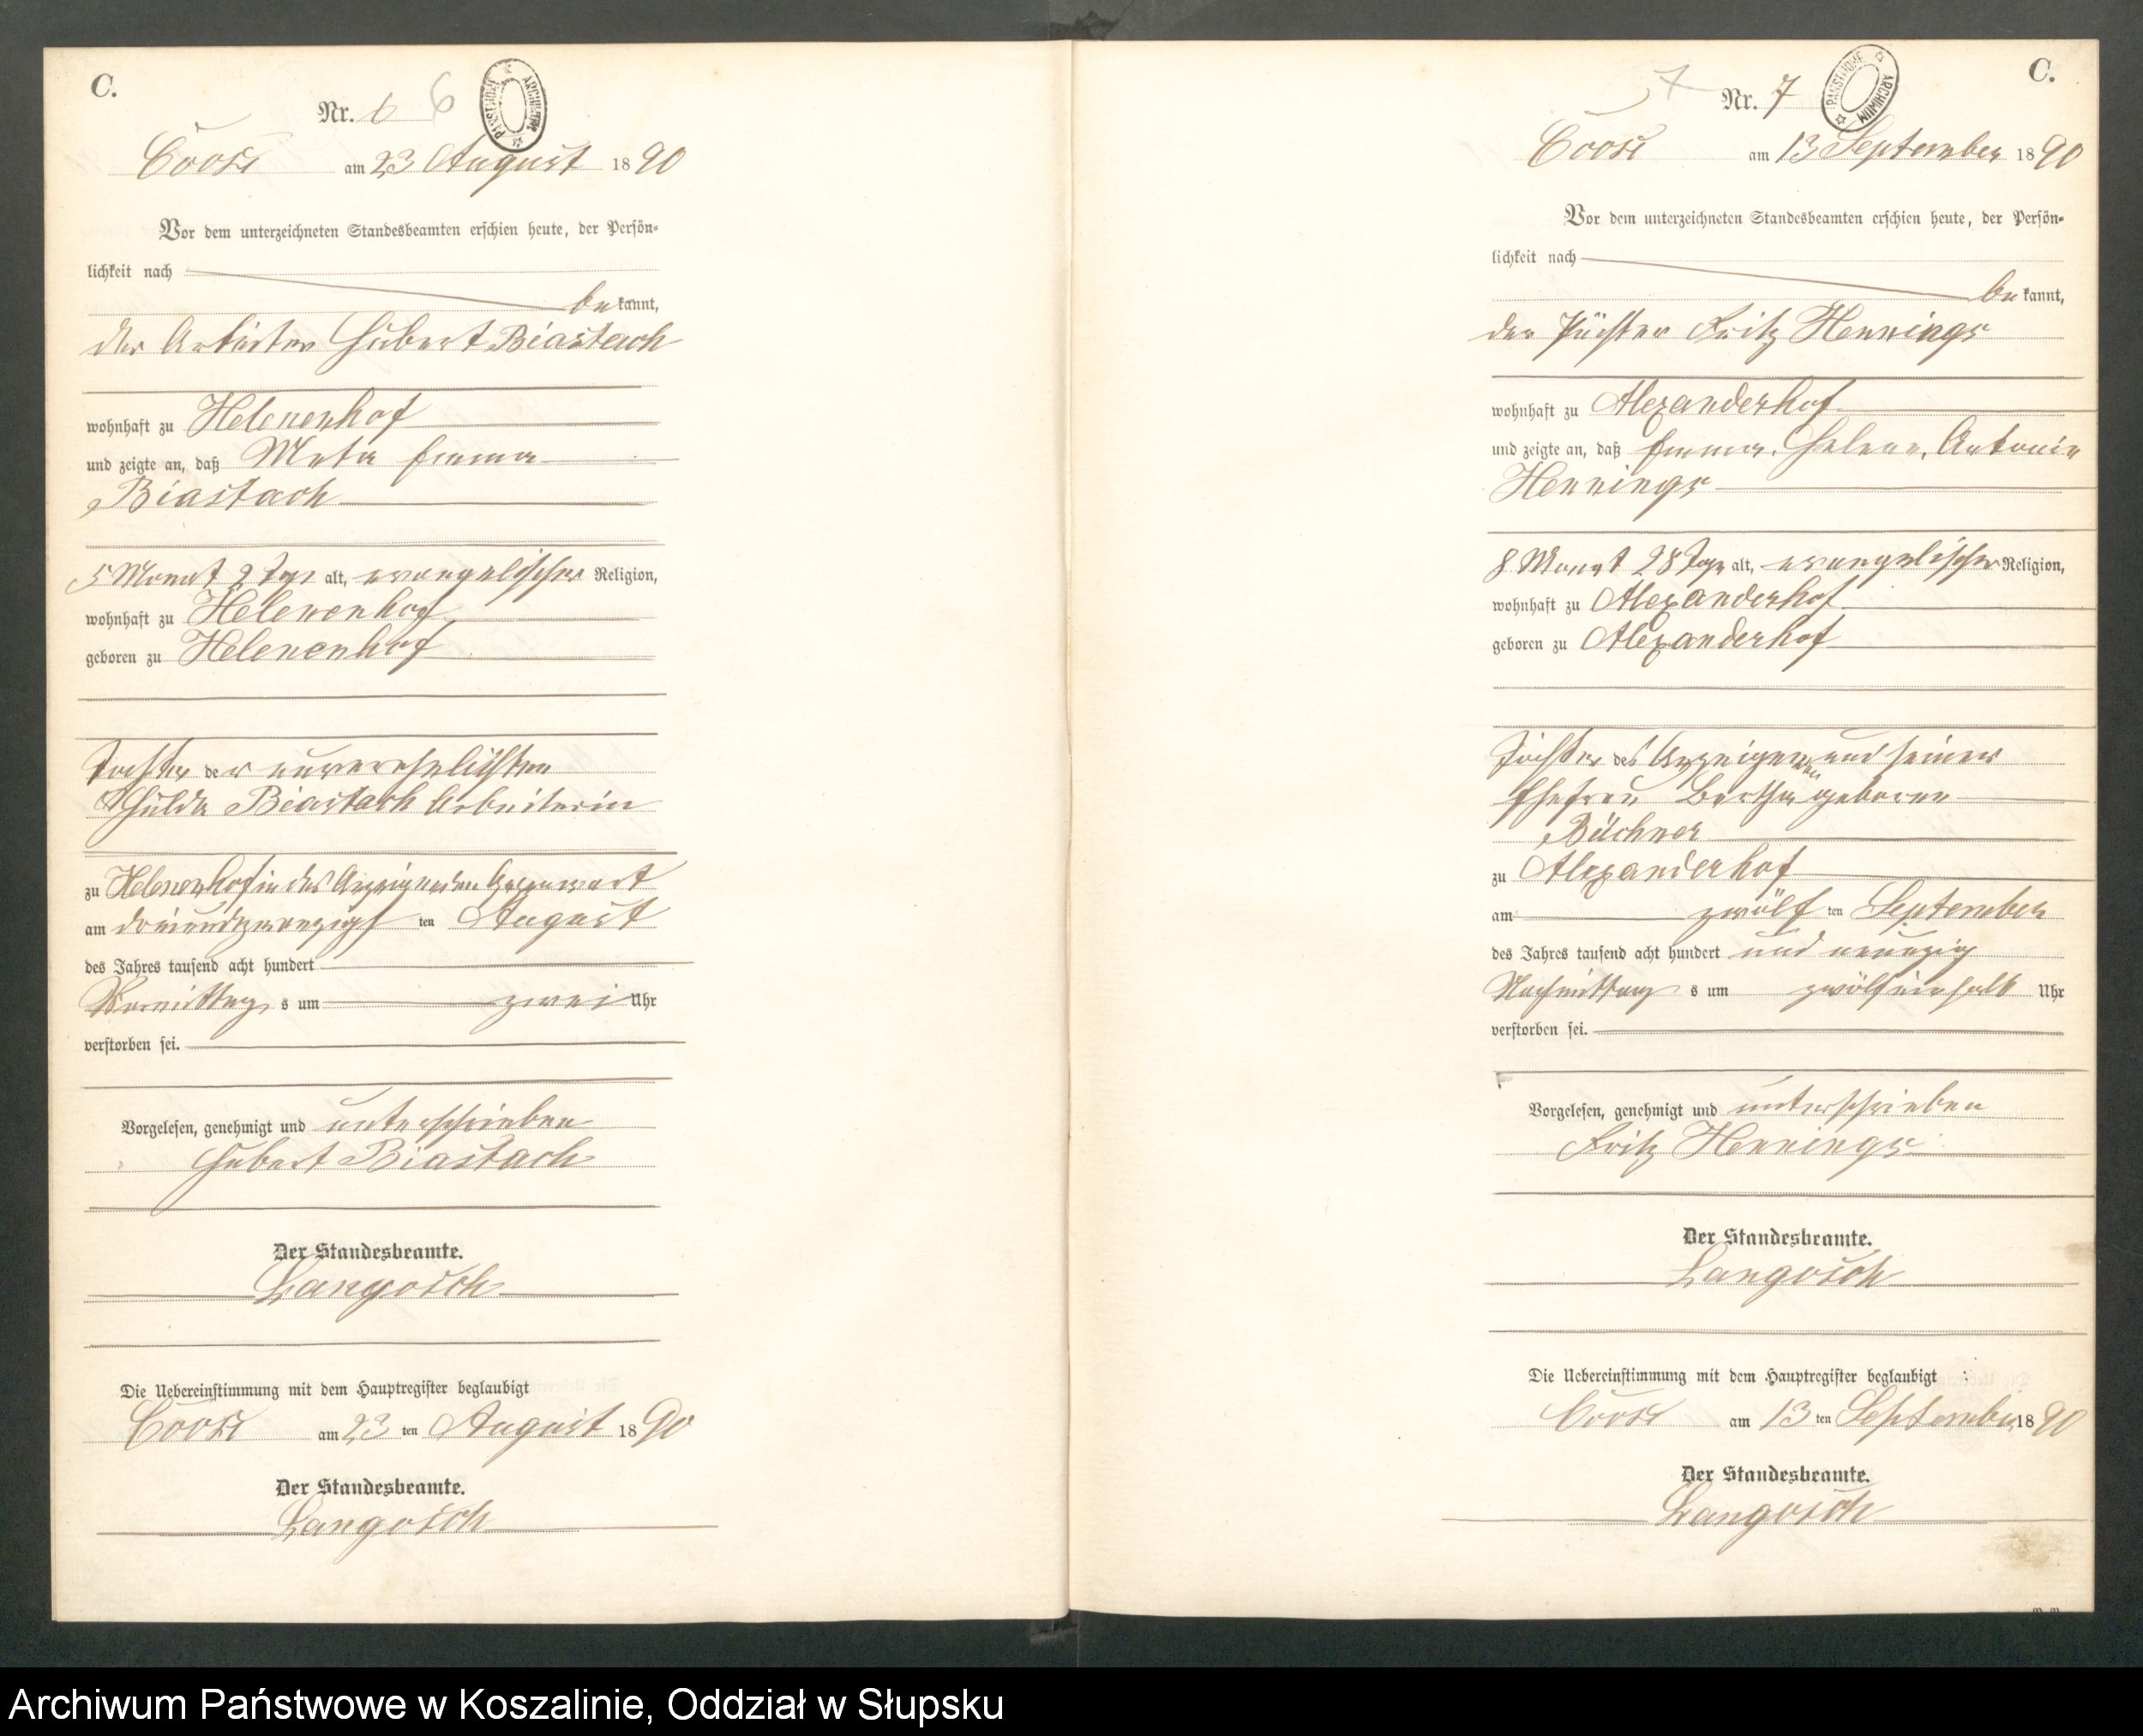 C.
Nr. 6 6
PAŃSTWOWE ARCHIWUM
Coose am 23 August 1890
Vor dem unterzeichneten Standesbeamten erschien heute, der Persön-
lichkeit nach
bekannt,
der Arbeiter Hubert Biastoch
wohnhaft zu Helenenhof
und zeigte an, daß Meta Emma
Biastoch
5 Monat 2 Tage alt, evangelischer Religion,
wohnhaft zu Helenenhof
geboren zu Helenenhof
Tochter der unverehelichten
Hulda Biastoch Arbeiterin
zu Helenenhof in des Anzeigenden Gegenwart
am dreiundzwanzigsten August
des Jahres tausend acht hundert
Vormittags um zwei Uhr
verstorben sei.
Vorgelesen, genehmigt und unterschrieben
Hubert Biastoch
Der Standesbeamte.
Langosch
Die Uebereinstimmung mit dem Hauptregister beglaubigt
Coose am 23 ten August 1890
Der Standesbeamte.
Langosch
C.
7 Nr. 7
PAŃSTWOWE ARCHIWUM
Coose am 13 September 1890
Vor dem unterzeichneten Standesbeamten erschien heute, der Persön-
lichkeit nach
bekannt,
der Pächter Fritz Hennings
wohnhaft zu Alexanderhof
und zeigte an, daß Emma, Helene, Antonie
Hennings
8 Monat 28 Tage alt, evangelischer Religion,
wohnhaft zu Alexanderhof
geboren zu Alexanderhof
Tochter des Anzeigenden und seiner
Ehefrau Bertha geboren
Büchner
zu Alexanderhof
am zwölf ten September
des Jahres tausend acht hundert und neunzig
Nachmittags um zwölfeinhalb Uhr
verstorben sei.
Vorgelesen, genehmigt und unterschrieben
Fritz Hennings
Der Standesbeamte.
Langosch
Die Uebereinstimmung mit dem Hauptregister beglaubigt
Coose am 13 ten September 1890
Der Standesbeamte.
Langosch
Archiwum Państwowe w Koszalinie, Oddział w Słupsku